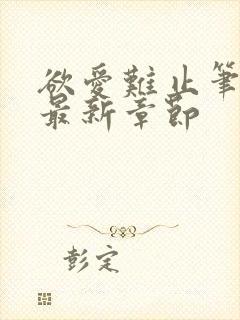 欲爱難止筆
最新章節
彭定